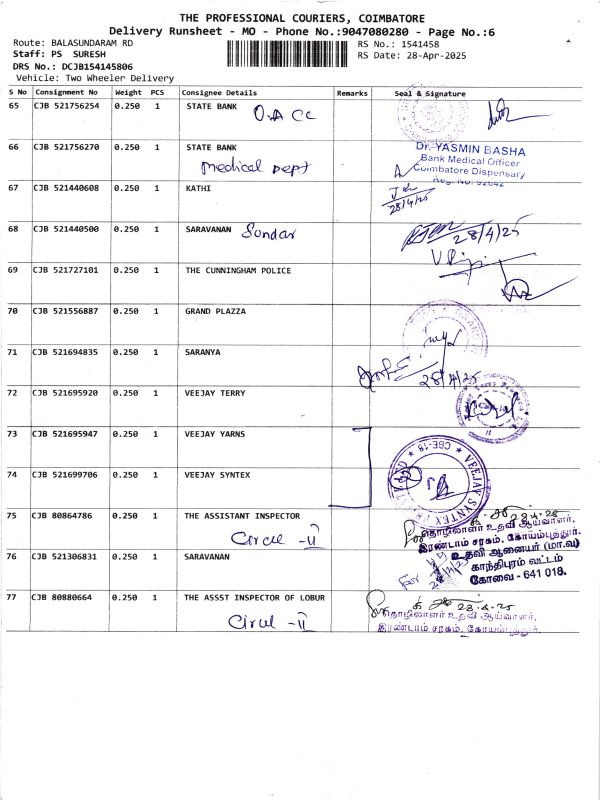 THE PROFESSIONAL COURIERS, COIMBATORE
Delivery Runsheet - MO - Phone No.:9047080280 - Page No.:6
Route: BALASUNDARAM RD
Staff: PS SURESH
DRS No.: DCJB154145806
Vehicle: Two Wheeler Delivery
RS No.: 1541458
RS Date: 28-Apr-2025
S No Consignment No Weight PCS Consignee Details Remarks Seal & Signature
65 CJB 521756254 0.250 1 STATE BANK
O.A CC
66 CJB 521756270 0.250 1 STATE BANK
medical Dept
Dr. YASMIN BASHA
Bank Medical Officer
Coimbatore Dispensary
Reg. No. 92642
67 CJB 521440608 0.250 1 KATHI
28/4/25
68 CJB 521440500 0.250 1 SARAVANAN Sundar
28/4/25
69 CJB 521727101 0.250 1 THE CUNNINGHAM POLICE
70 CJB 521556887 0.250 1 GRAND PLAZZA
71 CJB 521694835 0.250 1 SARANYA
28/4/25
72 CJB 521695920 0.250 1 VEEJAY TERRY
73 CJB 521695947 0.250 1 VEEJAY YARNS
74 CJB 521699706 0.250 1 VEEJAY SYNTEX
VEEJAY SYNTEX
CBE-18
75 CJB 80864786 0.250 1 THE ASSISTANT INSPECTOR
Circul -II
தொழிலாளர் உதவி ஆய்வாளர்,
இரண்டாம் சரகம், கோயம்புத்தூர்.
76 CJB 521306831 0.250 1 SARAVANAN
உதவி ஆணையர் (மா.வ)
காந்திபுரம் வட்டம்
கோவை - 641 018.
77 CJB 80880664 0.250 1 THE ASSST INSPECTOR OF LOBUR
Cirul -II
28-4-25
தொழிலாளர் உதவி ஆய்வாளர்,
இரண்டாம் சரகம், கோயம்புத்தூர்.